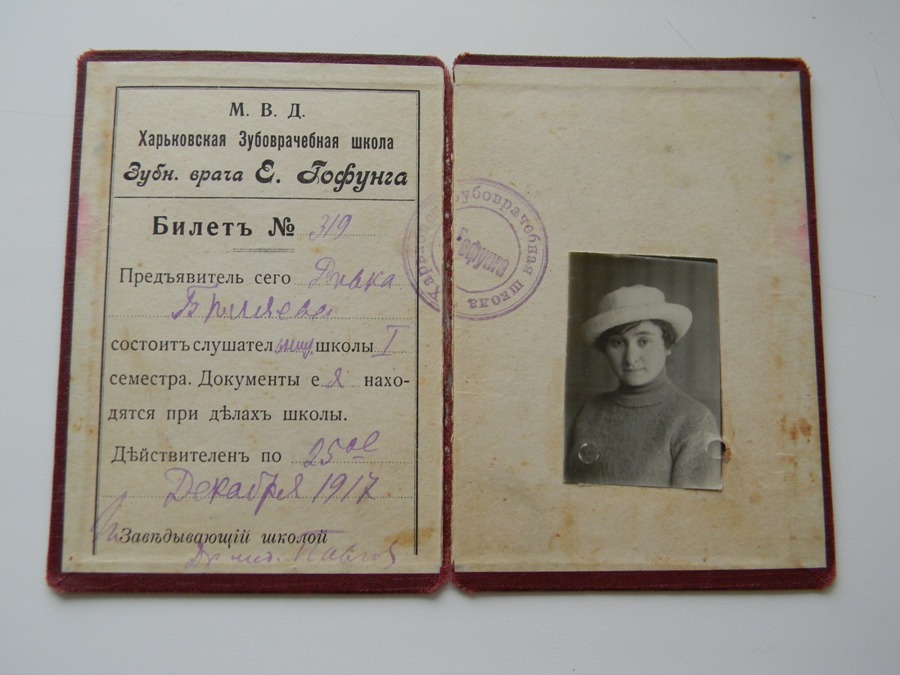 М. В. Д.
Харьковская Зубоврачебная школа
Зубн. врача Е. Гофунга
Билетъ № 319
Предъявитель сего Ривка
состоитъ слушательницу школы I
семестра. Документы ея нахо-
дятся при дѣлахъ школы.
Дѣйствителенъ по 25ое
Декабря 1917
Завѣдывающій школой
Др мед. Павлов
Харьков Зубоврачебная школа
Гофунга